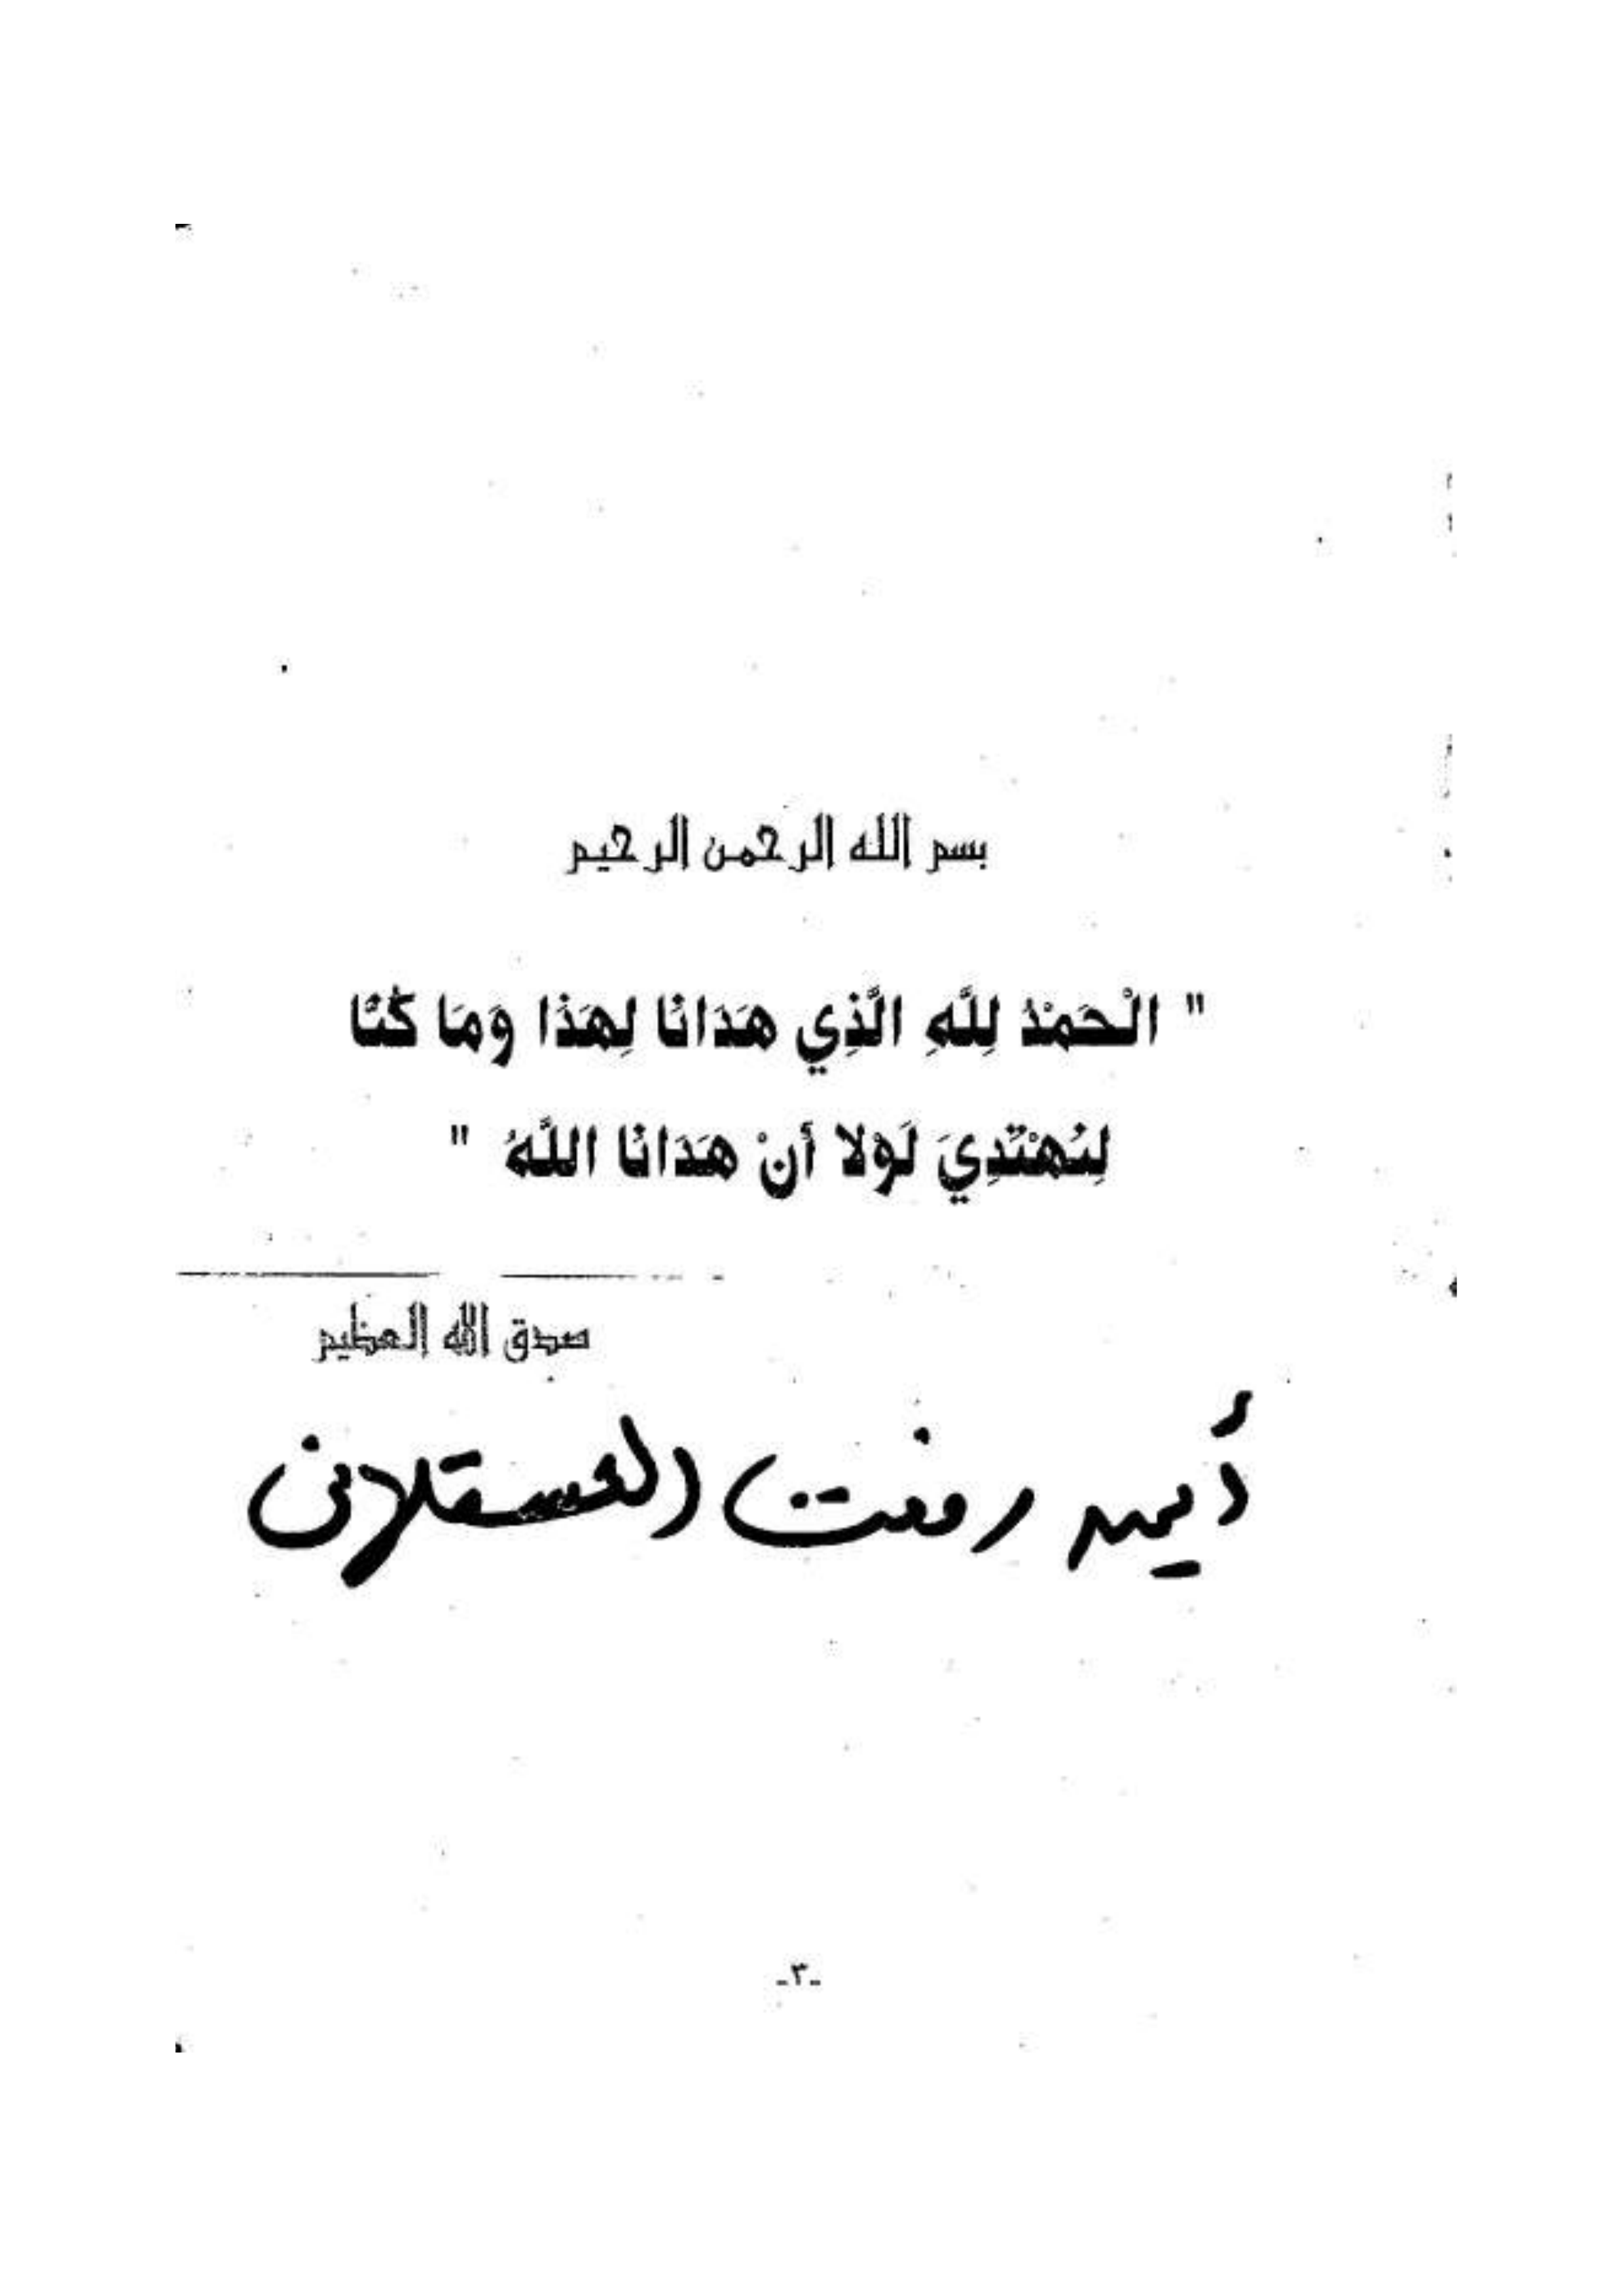 بسم الله الرحمن الرحيم
" الْحَمْدُ لِلَّهِ الَّذِي هَدَانَا لِهَذَا وَمَا كُنَّا
لِنَهْتَدِيَ لَوْلا أَنْ هَدَانَا اللَّهُ "
صدق الله العظيم
رفعت العسقلانى
-٣-